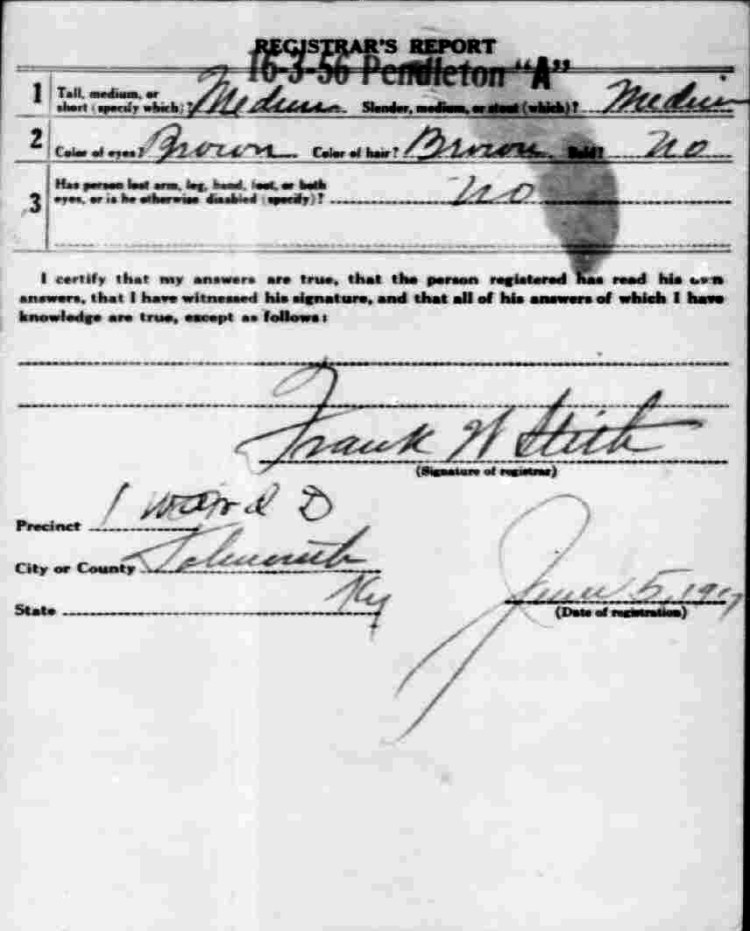 REGISTRAR'S REPORT
16-3-56 Pendleton "A"
1 Tall, medium, or short (specify which)? Medium Slender, medium, or stout (which)? Medium
2 Color of eyes? Brown Color of hair? Brown Bald? No
3 Has person lost arm, leg, hand, foot, or both eyes, or is he otherwise disabled (specify)? No
I certify that my answers are true, that the person registered has read his own
answers, that I have witnessed his signature, and that all of his answers of which I have
knowledge are true, except as follows:
Frank W
(Signature of registrar)
Precinct 1 Ward D
City or County Falmouth
State Ky
June 5, 1917
(Date of registration)